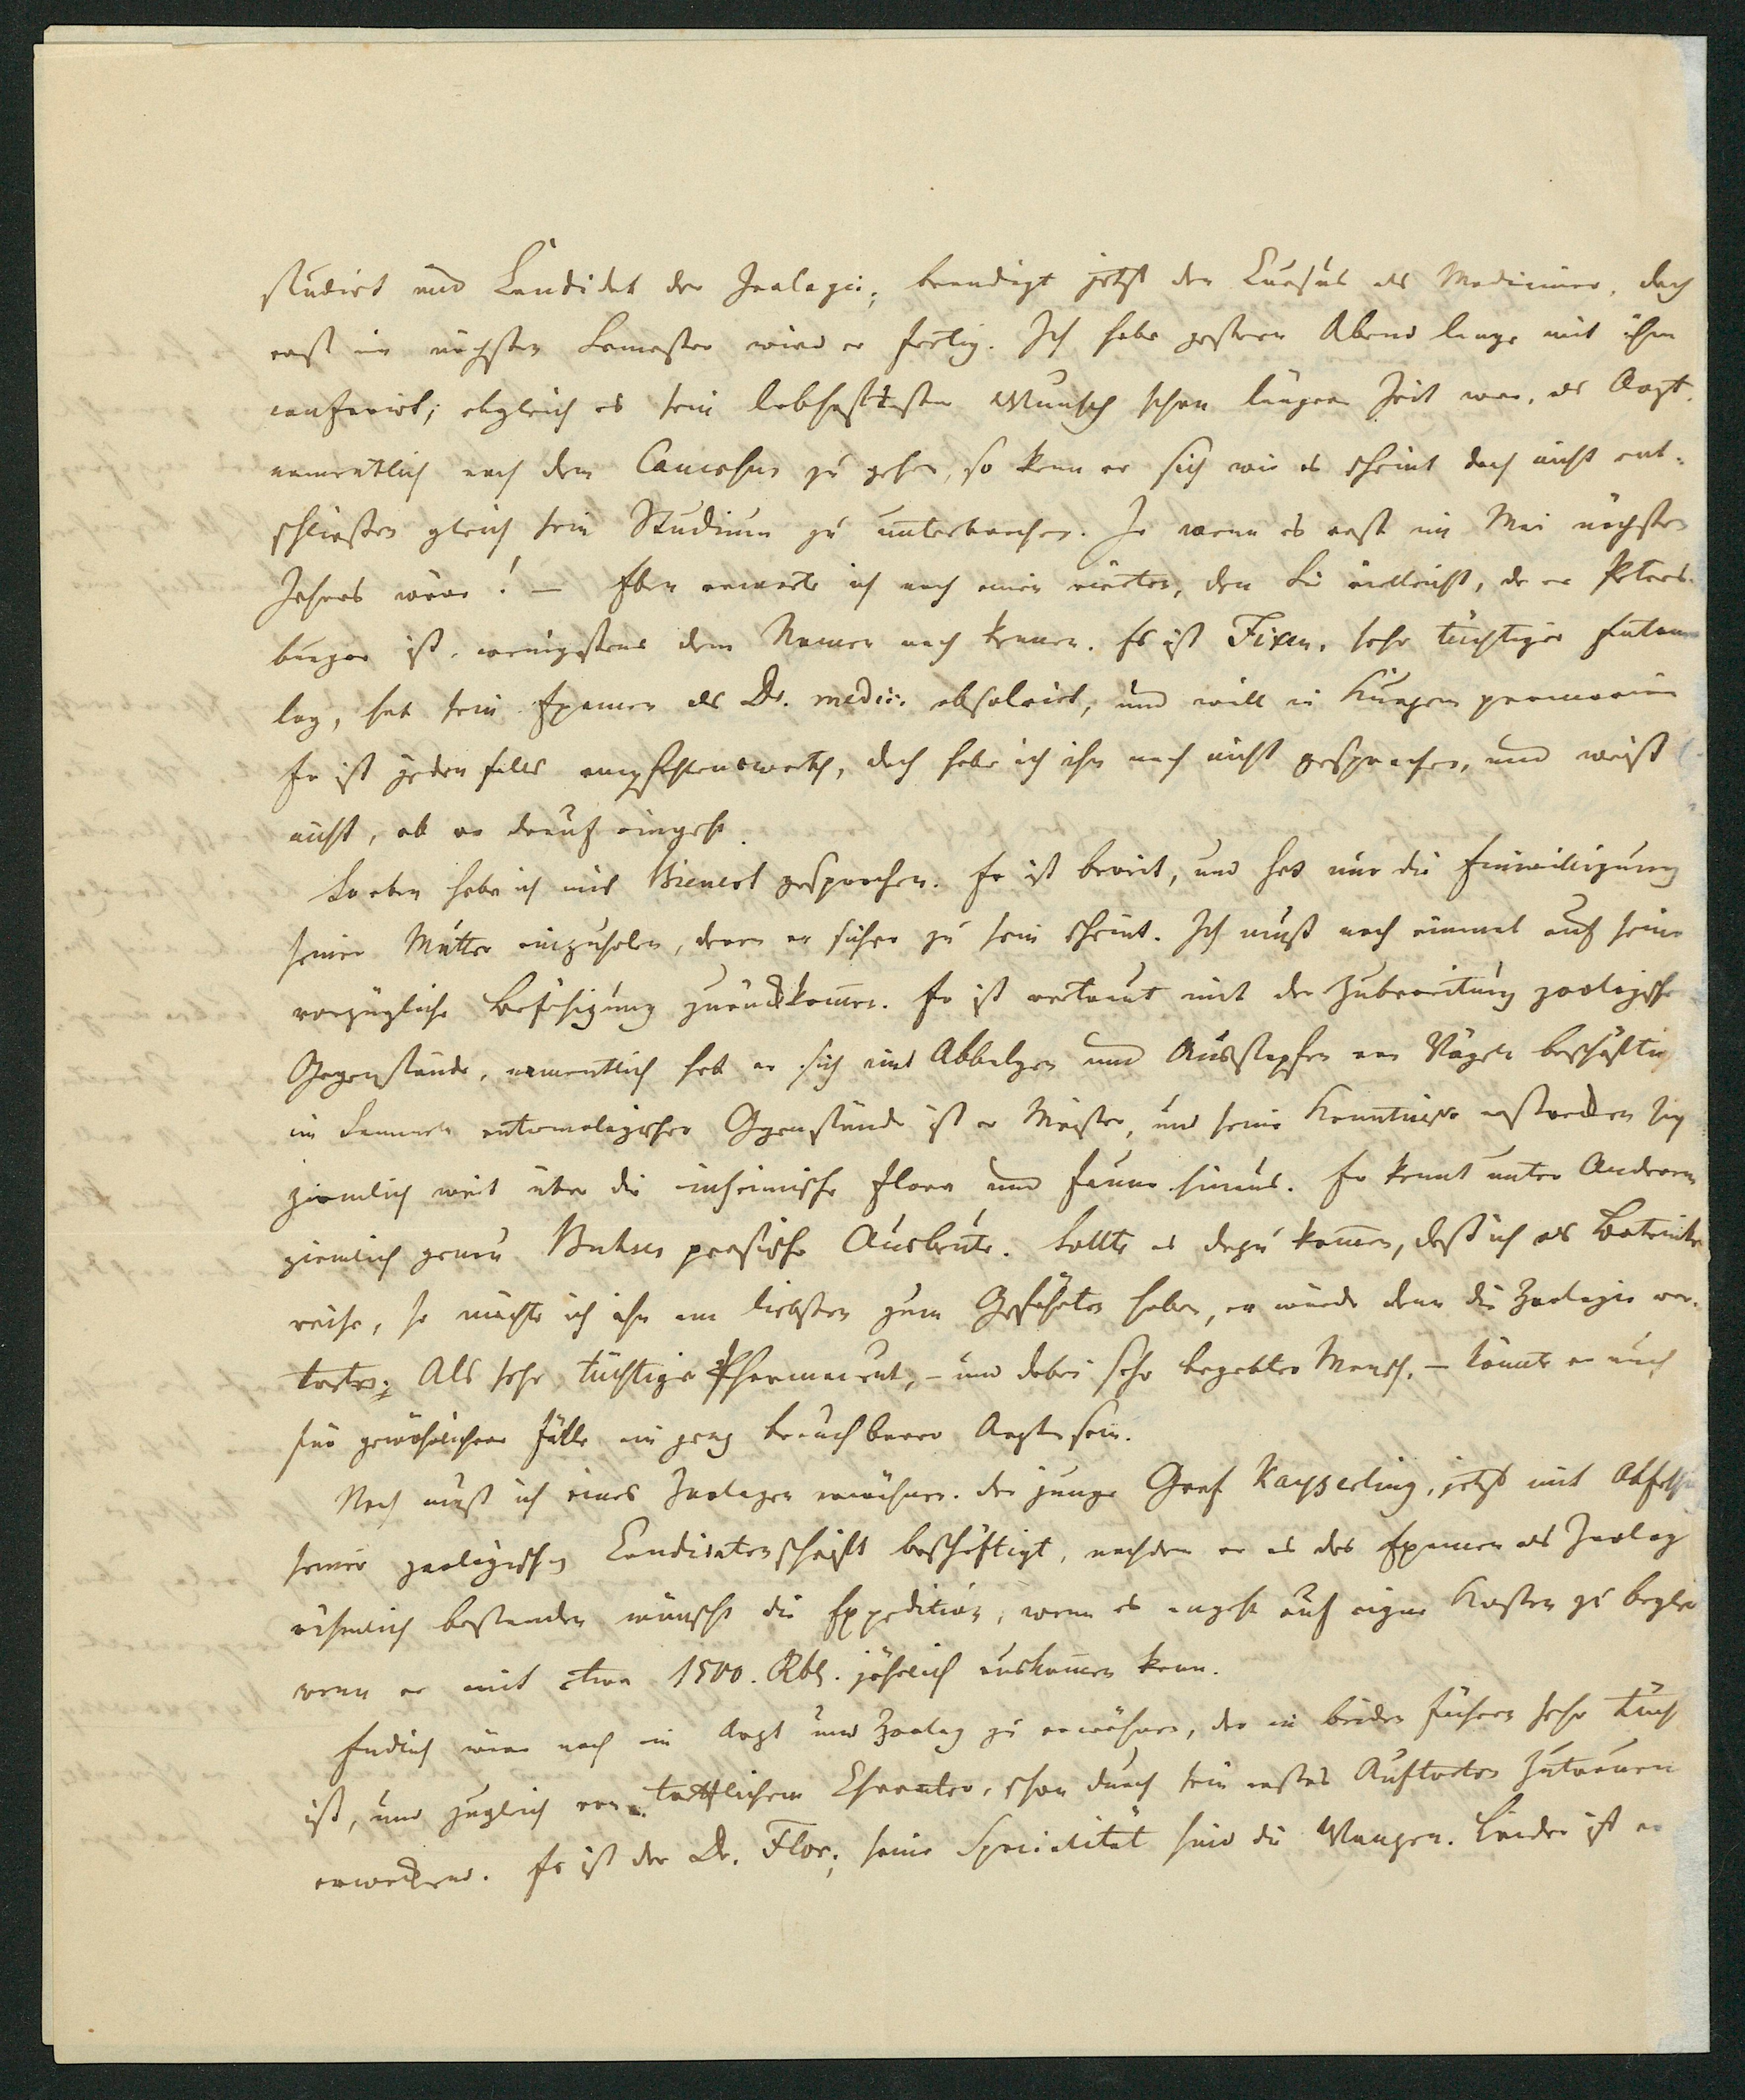 studirt und Candidat der Zoologie; beendigt jetzt den Cursus als Mediciner, doch
erst im nächsten Semester wird er fertig. Ich habe gestern Abend lange mit ihm
conferirt; obgleich es sein lebhaftester Wunsch schon längere Zeit war, als Arzt
namentlich nach dem Caucasus zu gehen, so kann er sich wie es scheint doch nicht ent-
schließen gleich sein Studium zu unterbrechen. Ja wenn es erst im Mai nächsten
Jahres wäre! – Eben erwarte ich noch einen vierten, den Sie vielleicht, da er Peters-
burger ist, wenigstens dem Namen nach kennen. Es ist Fixen, sehr tüchtiger Entomo
log, hat sein Examen als Dr. medic. absolvirt, und will in Kurzem promoviren
Er ist jeden falls empfehlenswerth, doch habe ich ihn noch nicht gesprochen, und weiß
nicht, ob er drauf eingeht.
So eben habe ich mit Bienert gesprochen. Er ist bereit, und hat nur die Einwilligung
seiner Mutter einzuholen, deren er sicher zu sein scheint. Ich muß noch einmal auf seine
vorzügliche Befähigung zurückkommen. Er ist vertraut mit der Zubereitung zoologische
Gegenstände, namentlich hat er sich mit Abbalgen und Ausstopfen von Vögeln beschäftig
im Sammeln entomologischer Gegenstände ist er Meister, und seine Kenntnisse erstrecken sich
ziemlich weit über die einheimische Flora und Fauna hinaus. Er kennt unter Anderem
ziemlich genau Buhses persische Ausbeute. Sollte es dazu kommen, daß ich als Botanike
reise, so möchte ich ihn am liebsten zum Gefährten haben, er würde dann die Zoologie ver-
treten; Als sehr tüchtiger Pharmaceut, – und dabei sehr begabter Mensch, – könnte er auch
für gewöhnlichere Fälle ein ganz brauchbarer Arzt sein.
Noch muß ich eines Zoologen erwähnen. Der junge Graf Kayserling, jetzt mit Abfass
seiner zoologischen Candidatenschrift beschäftigt, nachdem er das Examen als Zoolog
rühmlich bestanden wünscht die Expedition, wenn es angeht auf eigne Kosten zu beglei
wenn er mit etwa 1500. Rbl. jährlich auskommen kann.
Endlich wäre noch ein Arzt und Zoolog zu erwähnen, der in beiden Fächern sehr tüch
ist, und zugleich von trefflichem Charakter, schon durch sein erstes Auftreten Zutrauen
erweckend. Es ist der Dr. Flor; seine Specialität sind die Wanzen. Leider ist er